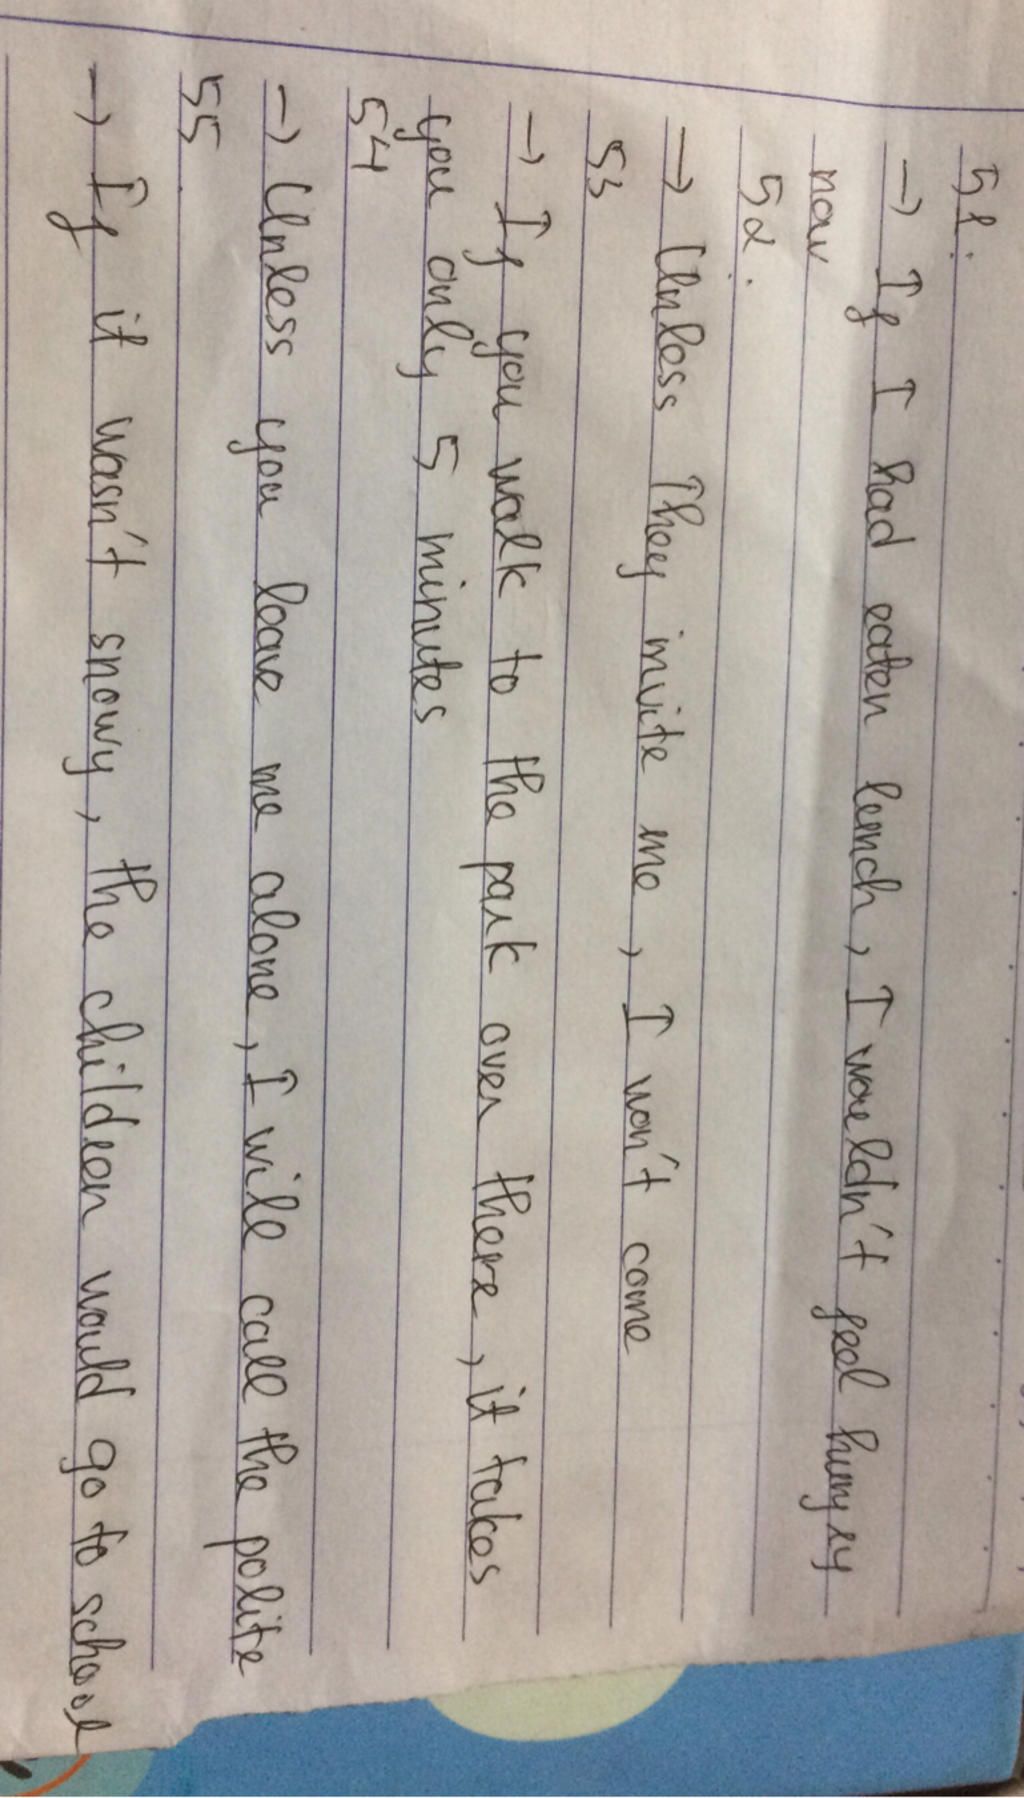 51.
→ If I had eaten lunch, I wouldn't feel hungry
now
52.
→ Unless They invite me, I won't come
53
→ If you walk to the park over there, it takes
you only 5 minutes
54
→ Unless you leave me alone, I will call the polite
55.
→ If it wasn't snowy, the children would go to school